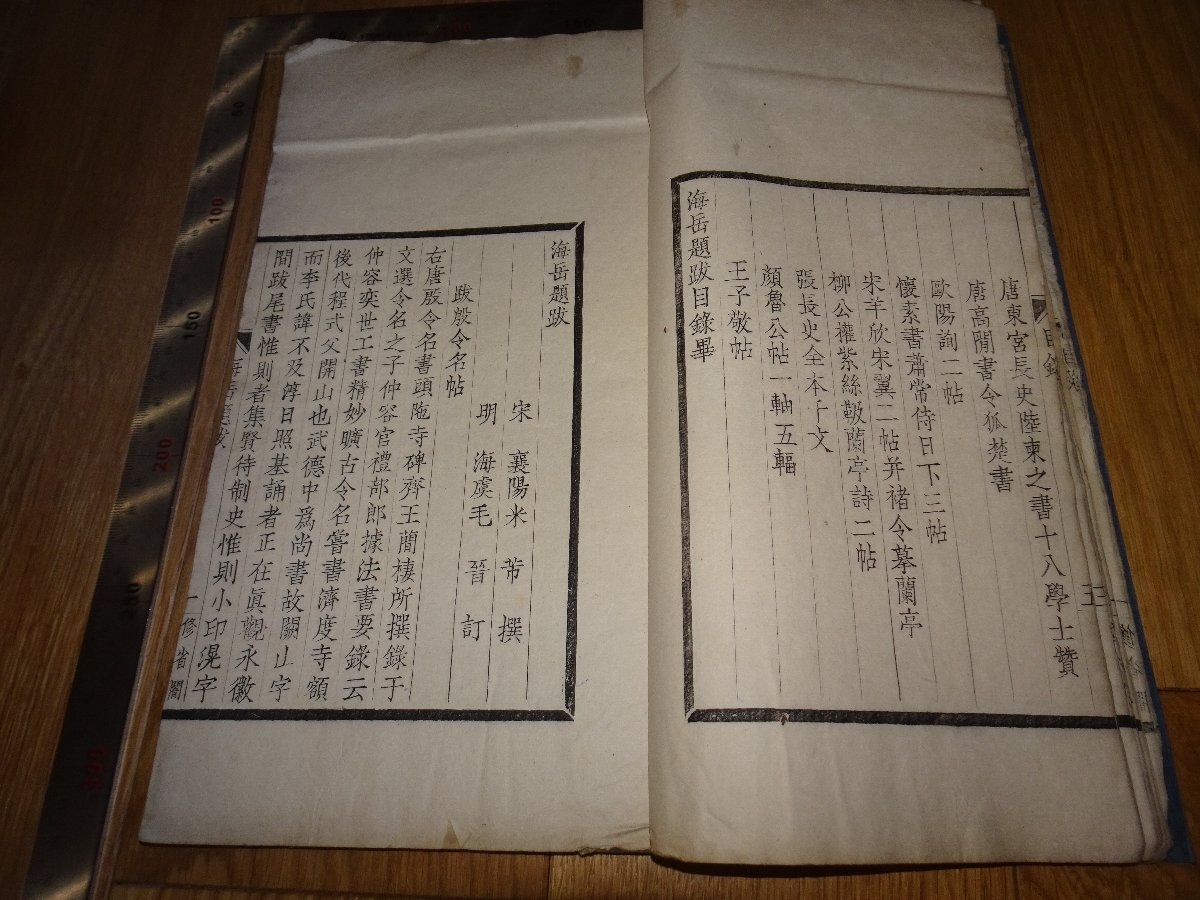 唐東宮長史陸柬之書十八學士贊
唐高閒書令狐楚書
歐陽詢二帖
懷素書蕭常侍日下三帖
宋羊欣宋翼二帖并褚令摹蘭亭
柳公權紫絲靸蘭亭詩二帖
張長史全本千文
顏魯公帖一軸五輻
王子敬帖
海岳題跋目錄畢
海岳題跋
宋 襄陽米 芾 撰
明 海虞毛 晉 訂
跋殷令名帖
右唐殷令名書頭陁寺碑齊王簡棲所撰錄于
文選令名之子仲容官禮部郎據法書要錄云
仲容奕世工書精妙曠古令名嘗書濟度寺額
後代程式父開山也武德中爲尚書故闕山字
而李氏諱不及淳日照基誦者正在眞觀永徽
間跋尾書惟則者集賢待制史惟則小印滉字
海岳題跋
一
200
150
100